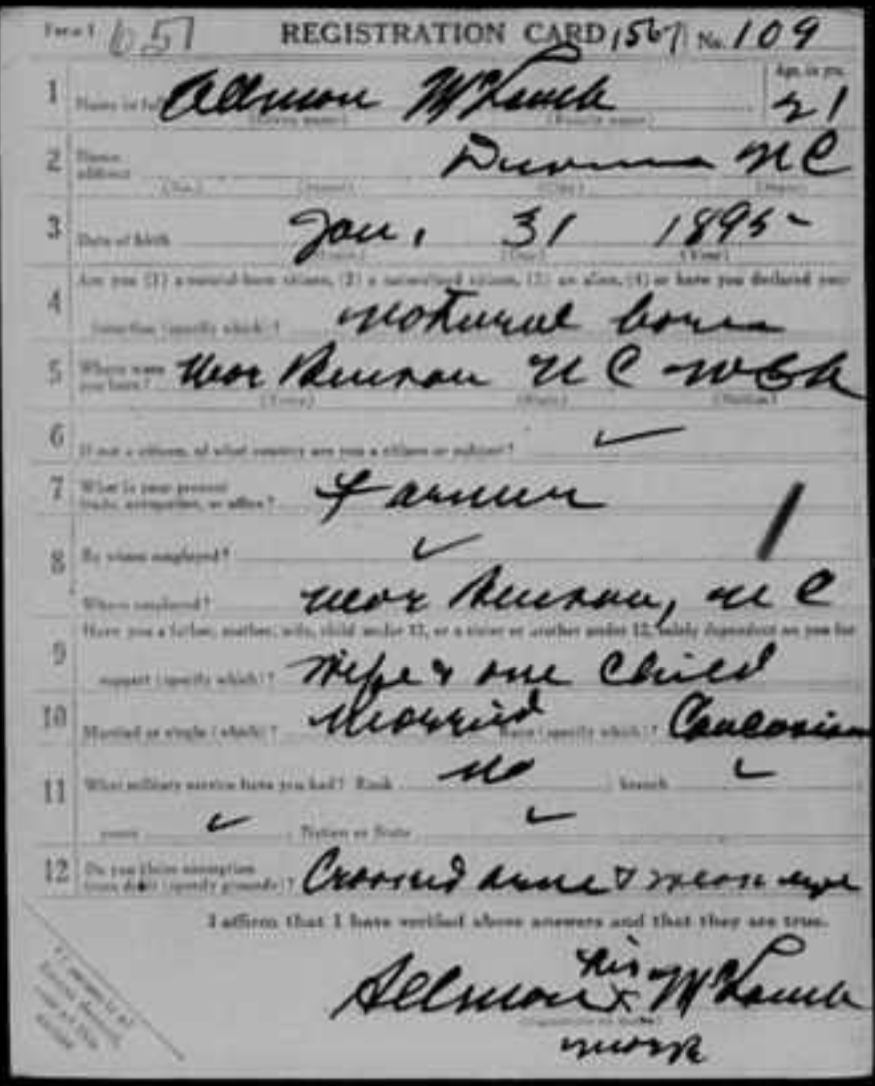 Form 1 657 REGISTRATION CARD 1567 No. 109
1 Name in full Allmon McLamb Age, in yrs. 21
(Given name) (Family name)
2 Home address Dunn N C
(No.) (Street) (City) (State)
3 Date of birth Jan. 31 1895
(Month) (Day) (Year)
4 Are you (1) a natural-born citizen, (2) a naturalized citizen, (3) an alien, (4) or have you declared your
intention (specify which)? natural born
5 Where were you born? Near Benson N C
(Town) (State) (Nation)
6 If not a citizen, of what country are you a citizen or subject? ✓
7 What is your present trade, occupation, or office? Farmer
8 By whom employed? ✓
Where employed? near Benson, N C
9 Have you a father, mother, wife, child under 12, or a sister or brother under 12, solely dependent on you for
support (specify which)? Wife & one Child
10 Married or single (which)? Married Race (specify which)? Caucasian
11 What military service have you had? Rank no ; branch ✓
years ✓ ; Nation or State ✓
12 Do you claim exemption from draft (specify grounds)? Crooked arm & weak eye
I affirm that I have verified above answers and that they are true.
his
Allmon x McLamb
(Signature or mark)
mark